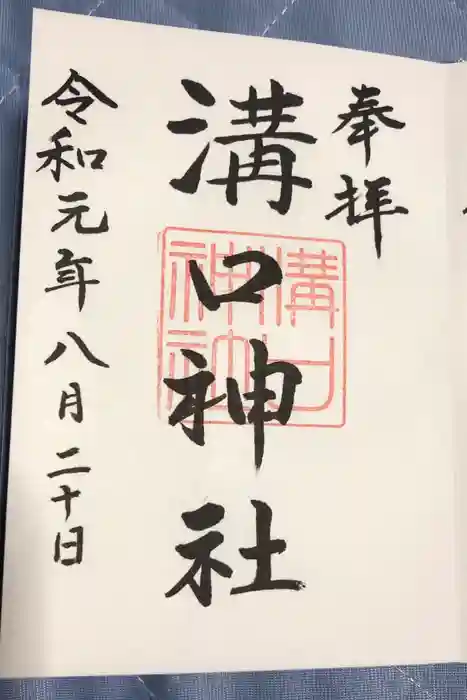 奉拝
溝口神社
溝口
神社
令和元年八月二十日